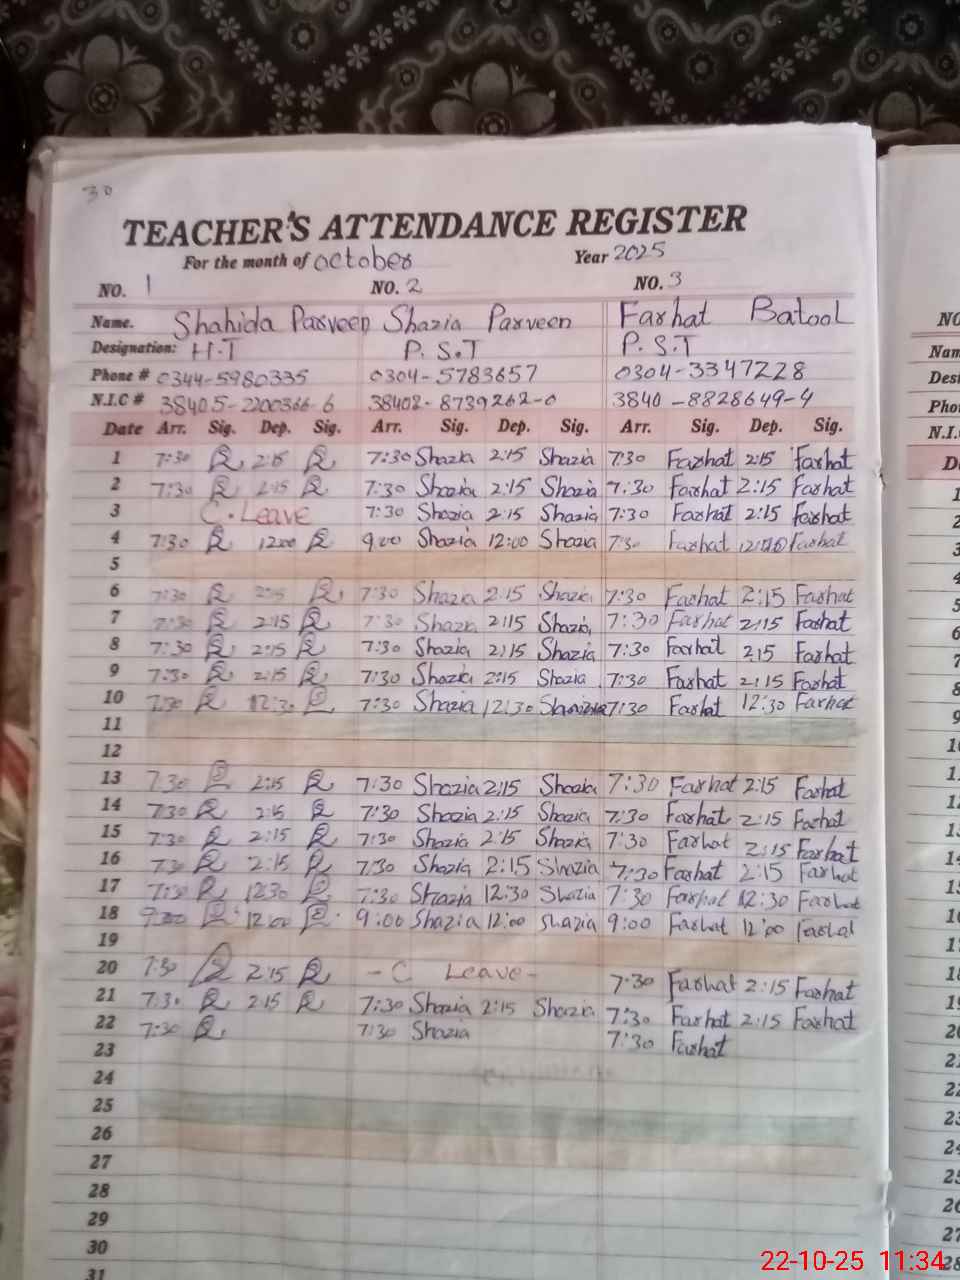 30
TEACHER'S ATTENDANCE REGISTER
For the month of october Year 2025
NO. 1 NO. 2 NO. 3
Name. Shahida Parveen Shazia Parveen Farhat Batool
Designation: H.T P. S.T P. S.T
Phone # 0344-5980335 0304-5783657 0304-3347228
N.I.C # 38405-2200366-6 38402-8739262-0 3840-8828649-4
Date Arr. Sig. Dep. Sig. Arr. Sig. Dep. Sig. Arr. Sig. Dep. Sig.
1 7:30 2:15 7:30 Shazia 2:15 Shazia 7:30 Farhat 2:15 Farhat
2 7:30 2:15 7:30 Shazia 2:15 Shazia 7:30 Farhat 2:15 Farhat
3 C. Leave 7:30 Shazia 2:15 Shazia 7:30 Farhat 2:15 Farhat
4 7:30 12:00 9:00 Shazia 12:00 Shazia 7:30 Farhat Farhat
5
6 7:30 2:15 7:30 Shazia 2:15 Shazia 7:30 Farhat 2:15 Farhat
7 7:30 2:15 7:30 Shazia 2:15 Shazia 7:30 Farhat 2:15 Farhat
8 7:30 2:15 7:30 Shazia 2:15 Shazia 7:30 Farhat 2:15 Farhat
9 7:30 2:15 7:30 Shazia 2:15 Shazia 7:30 Farhat 2:15 Farhat
10 7:30 12:30 7:30 Shazia 12:30 7:30 Farhat 12:30 Farhat
11
12
13 7:30 2:15 7:30 Shazia 2:15 Shazia 7:30 Farhat 2:15 Farhat
14 7:30 2:15 7:30 Shazia 2:15 Shazia 7:30 Farhat 2:15 Farhat
15 7:30 2:15 7:30 Shazia 2:15 Shazia 7:30 Farhat 2:15 Farhat
16 7:30 2:15 7:30 Shazia 2:15 Shazia 7:30 Farhat 2:15 Farhat
17 7:30 12:30 7:30 Shazia 12:30 Shazia 7:30 Farhat 12:30 Farhat
18 9:00 12:00 9:00 Shazia 12:00 Shazia 9:00 Farhat 12:00 Farhat
19
20 7:30 2:15 - C Leave - 7:30 Farhat 2:15 Farhat
21 7:30 2:15 7:30 Shazia 2:15 Shazia 7:30 Farhat 2:15 Farhat
22 7:30 7:30 Shazia 7:30 Farhat
23
24
25
26
27
28
29
30
31
22-10-25 11:34